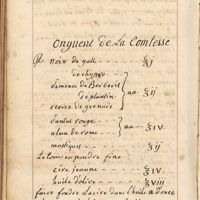 Onguent de La Comtesse
℞ noix de galle ------ ℥j
de chypre
semence de Berberis
de plantin ---- aa -- ℥ij
écorce de grenade
santal rouge ----
alun de rome --- aa --- ℥iv
mastiques ------ ℥ij
Le tout en poudre fine
cire jeaune ------ ℥iv
huile d'olive ------ ℥viii
faire fondre La cire dans l'huile a Douce